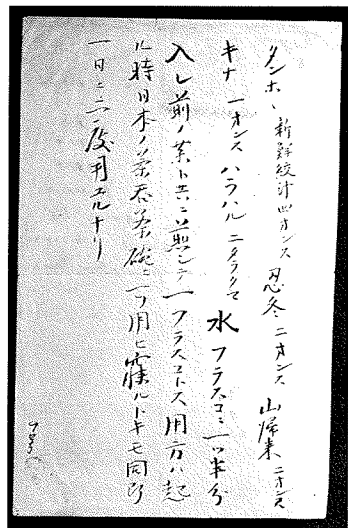 タンホヽ 新鮮絞汁四オンス 忍冬二オンス 山帰来二オンス
キナ 一オンス ハラハル 二タラクマ 水 フラスコニ一ツ半分
入レ前ノ薬ト共ニ煎シテ一フラスコトス用方ハ起
ル時日本ノ茶呑茶碗ニ一ツ用ヒ寐ルトキモ同断
一日ニ二三度用ユルナリ